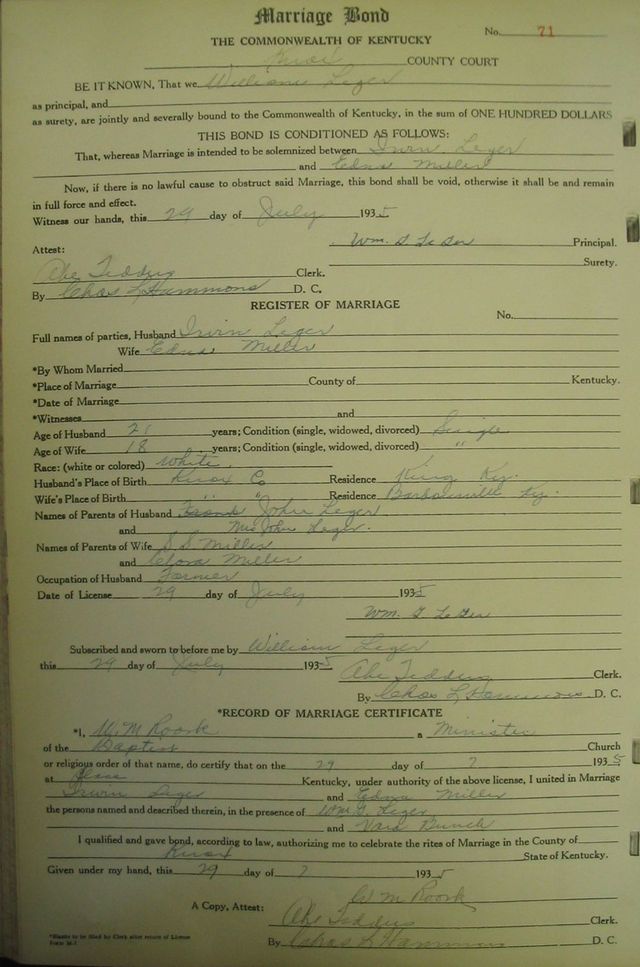 Marriage Bond
No. 71
THE COMMONWEALTH OF KENTUCKY
Knox COUNTY COURT
BE IT KNOWN, That we William Leger
as principal, and
as surety, are jointly and severally bound to the Commonwealth of Kentucky, in the sum of ONE HUNDRED DOLLARS
THIS BOND IS CONDITIONED AS FOLLOWS:
That, whereas Marriage is intended to be solemnized between Irvin Leger
and Edna Miller
Now, if there is no lawful cause to obstruct said Marriage, this bond shall be void, otherwise it shall be and remain
in full force and effect.
Witness our hands, this 29 day of July 1935
Wm. G Le Ger Principal.
Attest: Surety.
Clerk.
By Chas L Hammons D. C.
REGISTER OF MARRIAGE
No.
Full names of parties, Husband Irvin Leger
Wife Edna Miller
*By Whom Married
*Place of Marriage County of Kentucky.
*Date of Marriage
*Witnesses and
Age of Husband 21 years; Condition (single, widowed, divorced) Single
Age of Wife 18 years; Condition (single, widowed, divorced) "
Race: (white or colored) White
Husband's Place of Birth Knox Co Residence King Ky.
Wife's Place of Birth " " Residence Barbourville Ky.
Names of Parents of Husband John Leger
and Mrs John Leger.
Names of Parents of Wife S.S. Miller
and Clora Miller
Occupation of Husband Farmer
Date of License 29 day of July 1935
Wm. G Le Ger
Subscribed and sworn to before me by William Leger
this 29 day of July 1935
Clerk.
By Chas L Hammons D. C.
*RECORD OF MARRIAGE CERTIFICATE
*I, W. M Roark a Minister
of the Baptist Church
or religious order of that name, do certify that on the 29 day of 7 1935
at Kentucky, under authority of the above license, I united in Marriage
Irwin Leger and Edna Miller
the persons named and described therein, in the presence of Wm. G. Leger
and Bunch
I qualified and gave bond, according to law, authorizing me to celebrate the rites of Marriage in the County of
Knox State of Kentucky.
Given under my hand, this 29 day of 7 1935
W M Roark
A Copy, Attest: Clerk.
*Blanks to be filled by Clerk after return of License
By Chas L Hammons D. C.